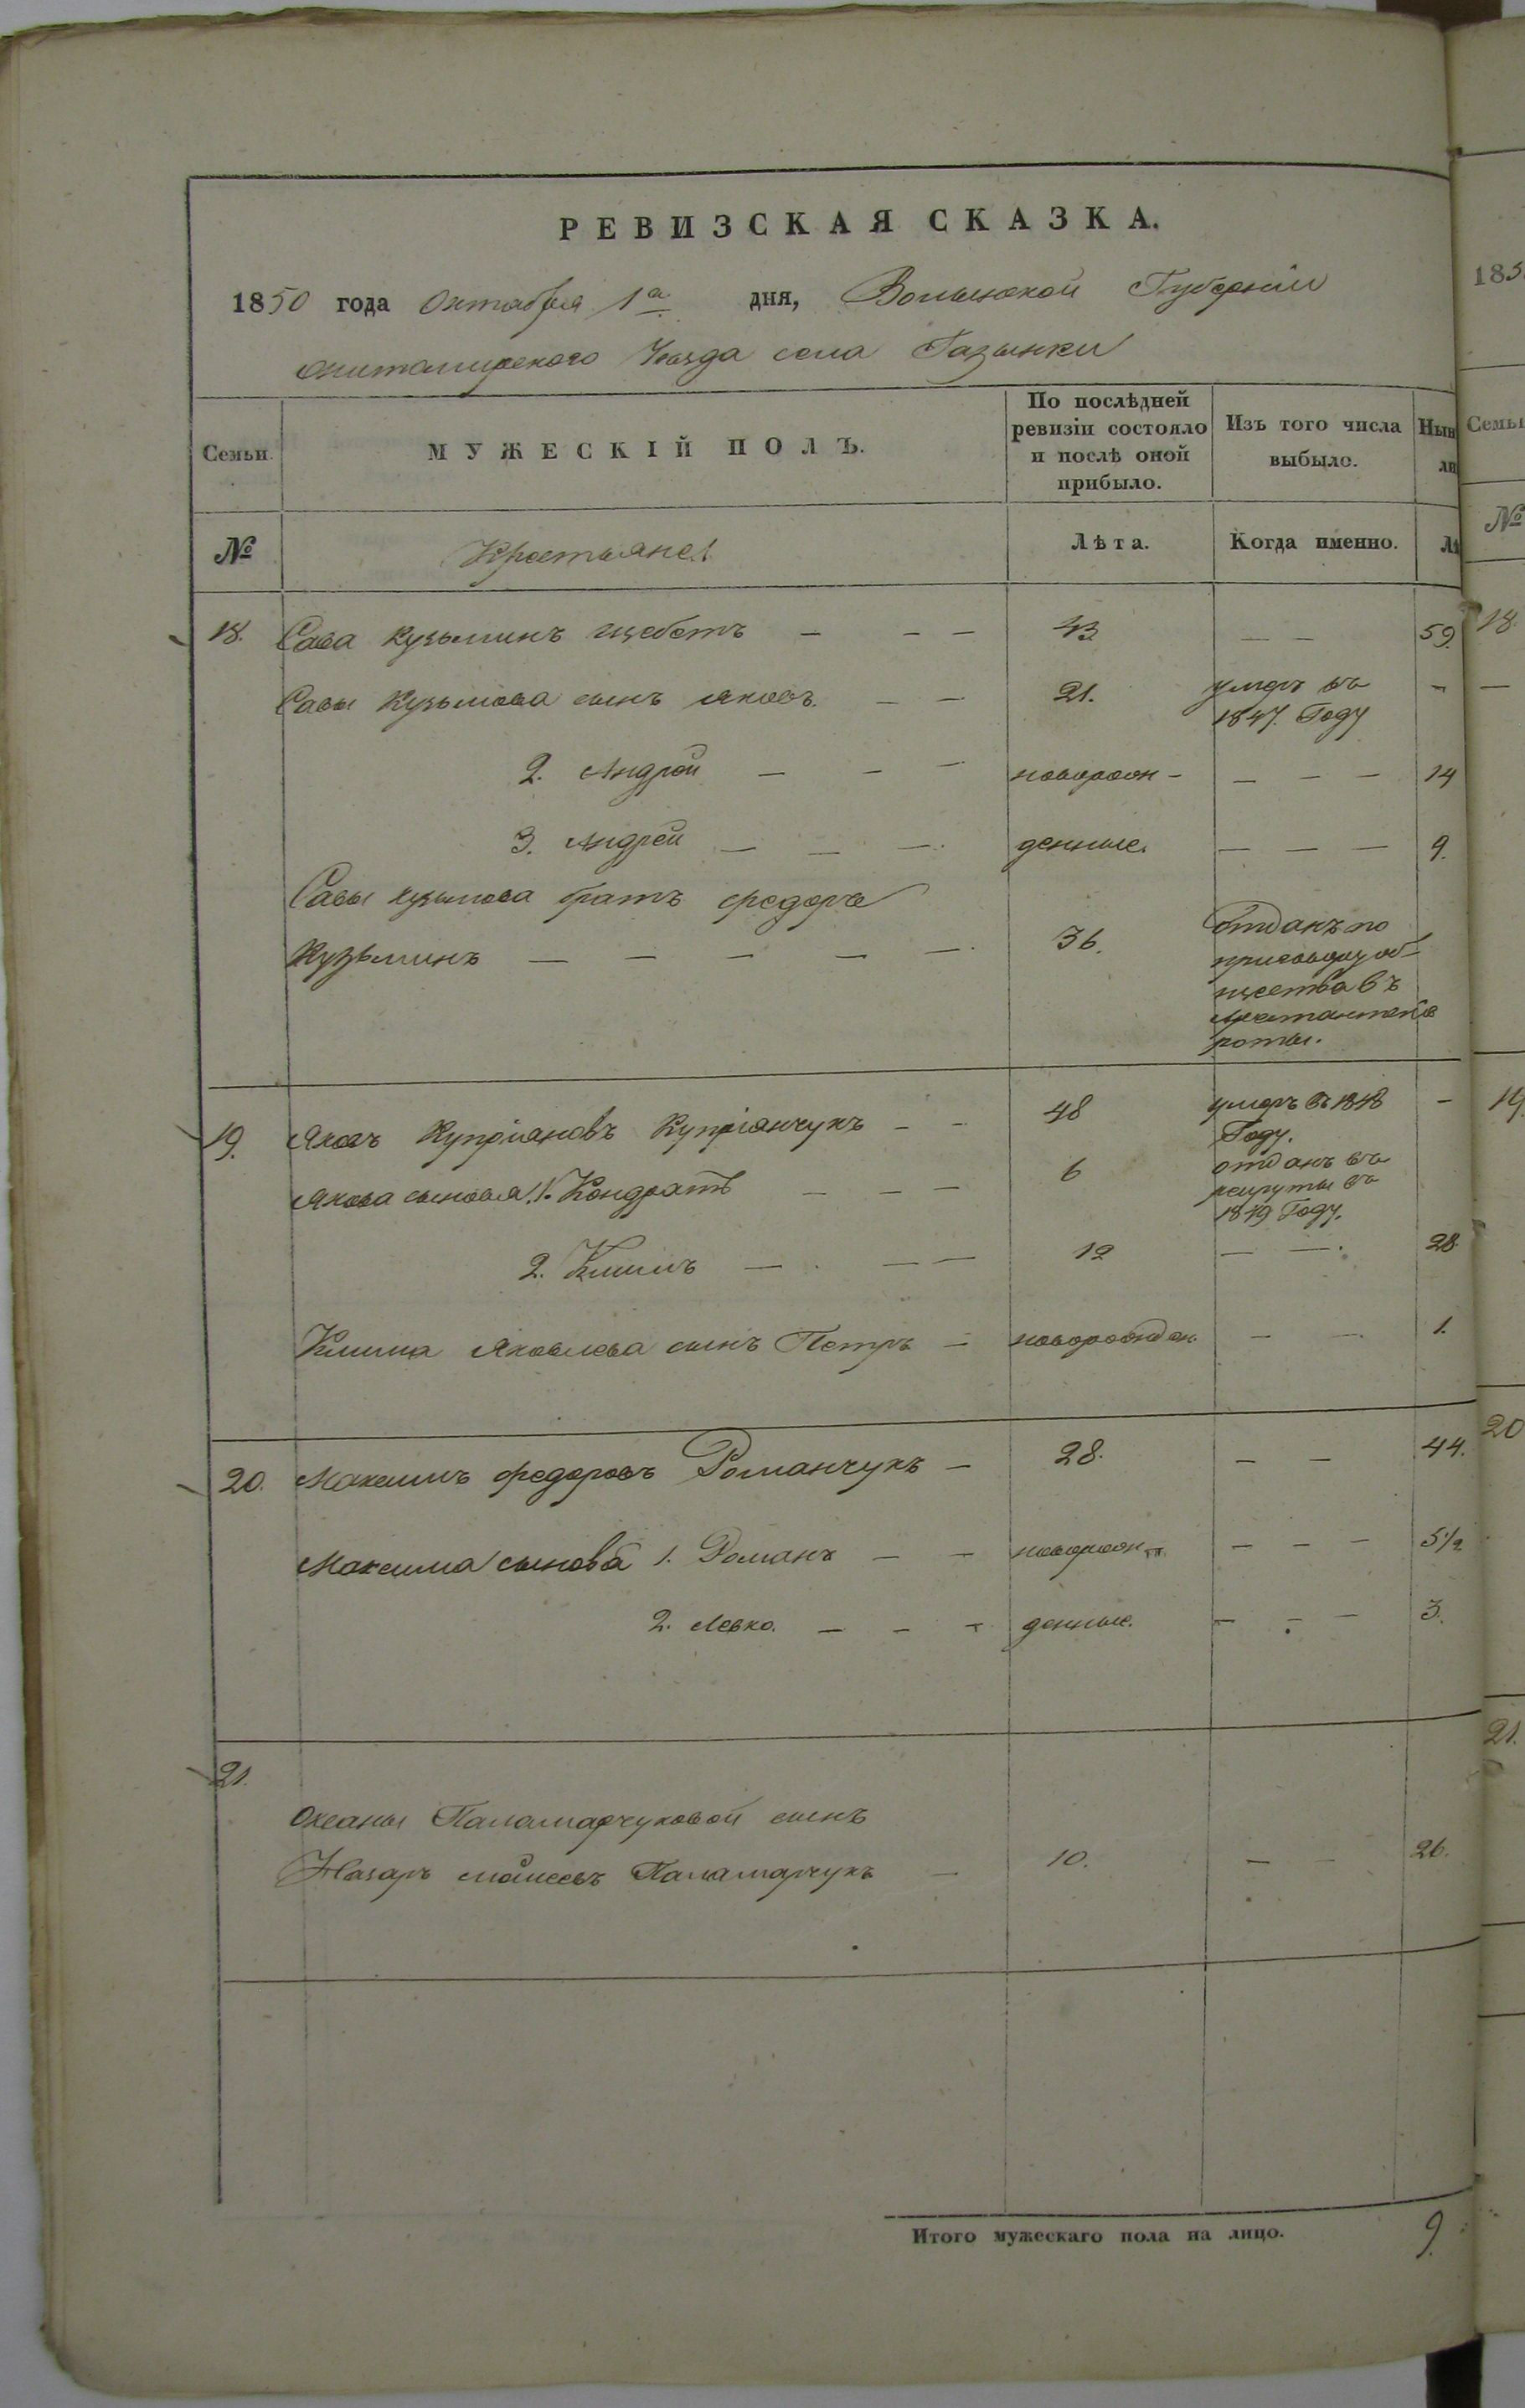 РЕВИЗСКАЯ СКАЗКА.
1850 года Октабря 1а дня, Волынской Губерніи
житомирского Уезда села Газынки
Семьи.
МУЖЕСКІЙ ПОЛЪ.
По послѣдней ревизіи состояло и послѣ оной прибыло.
Изъ того числа выбыло.
№
Крестьяне
Лѣта.
Когда именно.
18. Сава Кузьминъ щебетъ — — — 43 — — 59.
Савы Кузьмова сынъ яковъ. — — 21. умеръ въ 1847. Году —
2. Андрей — — — новорож- — — — 14
3. Андрей — — — денные. — — — 9.
Савы кузьмова братъ федоръ
Кузьминъ — — — — — 36. Отданъ по приговору общества въ арестантскіе роты.
19. Яковъ Купріяновъ Купріянчукъ — — 48 умеръ въ 1848 Году. —
Якова сыновья 1. Кондратъ — — — 6 отданъ въ рекруты въ 1849 Году.
2. Климъ — — — 12 — — 28.
Клима Яковлева сынъ Петръ — новорожден — — 1.
20. Максимъ федоровъ Романчукъ — 28. — — 44.
Максима сыновья 1. Романъ — — новорож — — — 5 1/2
2. Левко. — — — денные. — — — 3.
21.
Оксаны Паламарчуковой сынъ
Назаръ моисеевъ Паламарчукъ — 10. — — 26.
Итого мужескаго пола на лицо. 9.
185
Семьи
№
18.
—
19.
20
21.